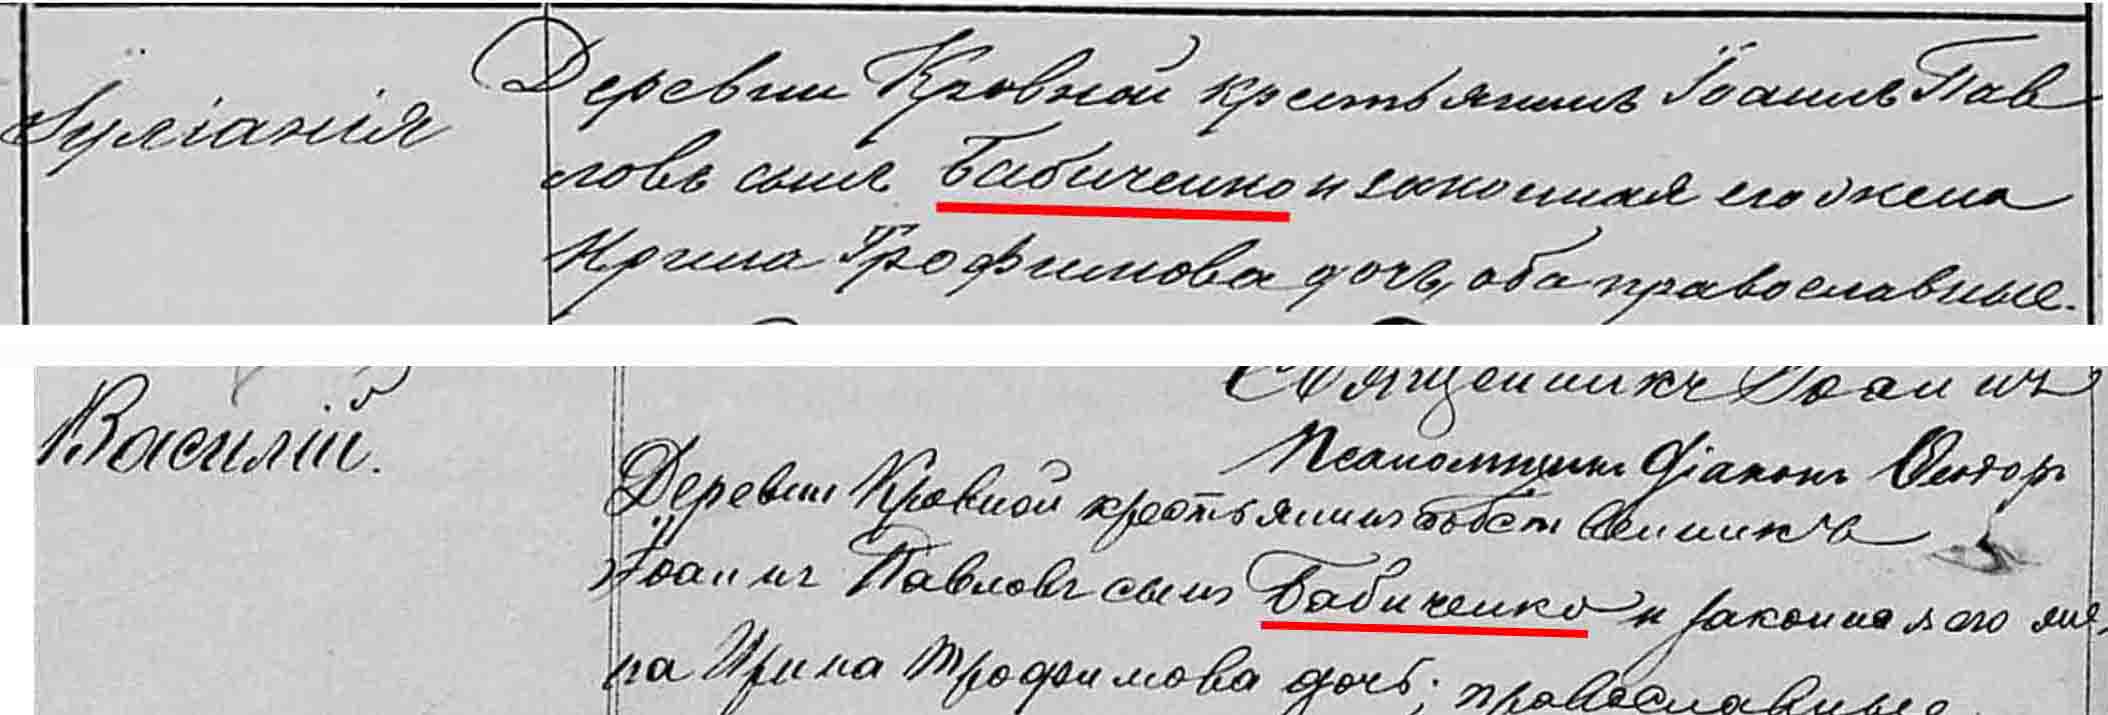 Іуліанія
Деревни Кровной крестьянинъ Іоаннъ Пав
ловъ сынъ Бабиченко и законная его жена
Ирина Трофимова дочь, оба православные.
Священникъ Іоаннъ
Василій.
Псаломщикъ діаконъ
Деревни Кровной крестьянинъ собственникъ
Іоаннъ Павловъ сынъ Бабиченко и законная его же
на Ирина Трофимова дочь; православные